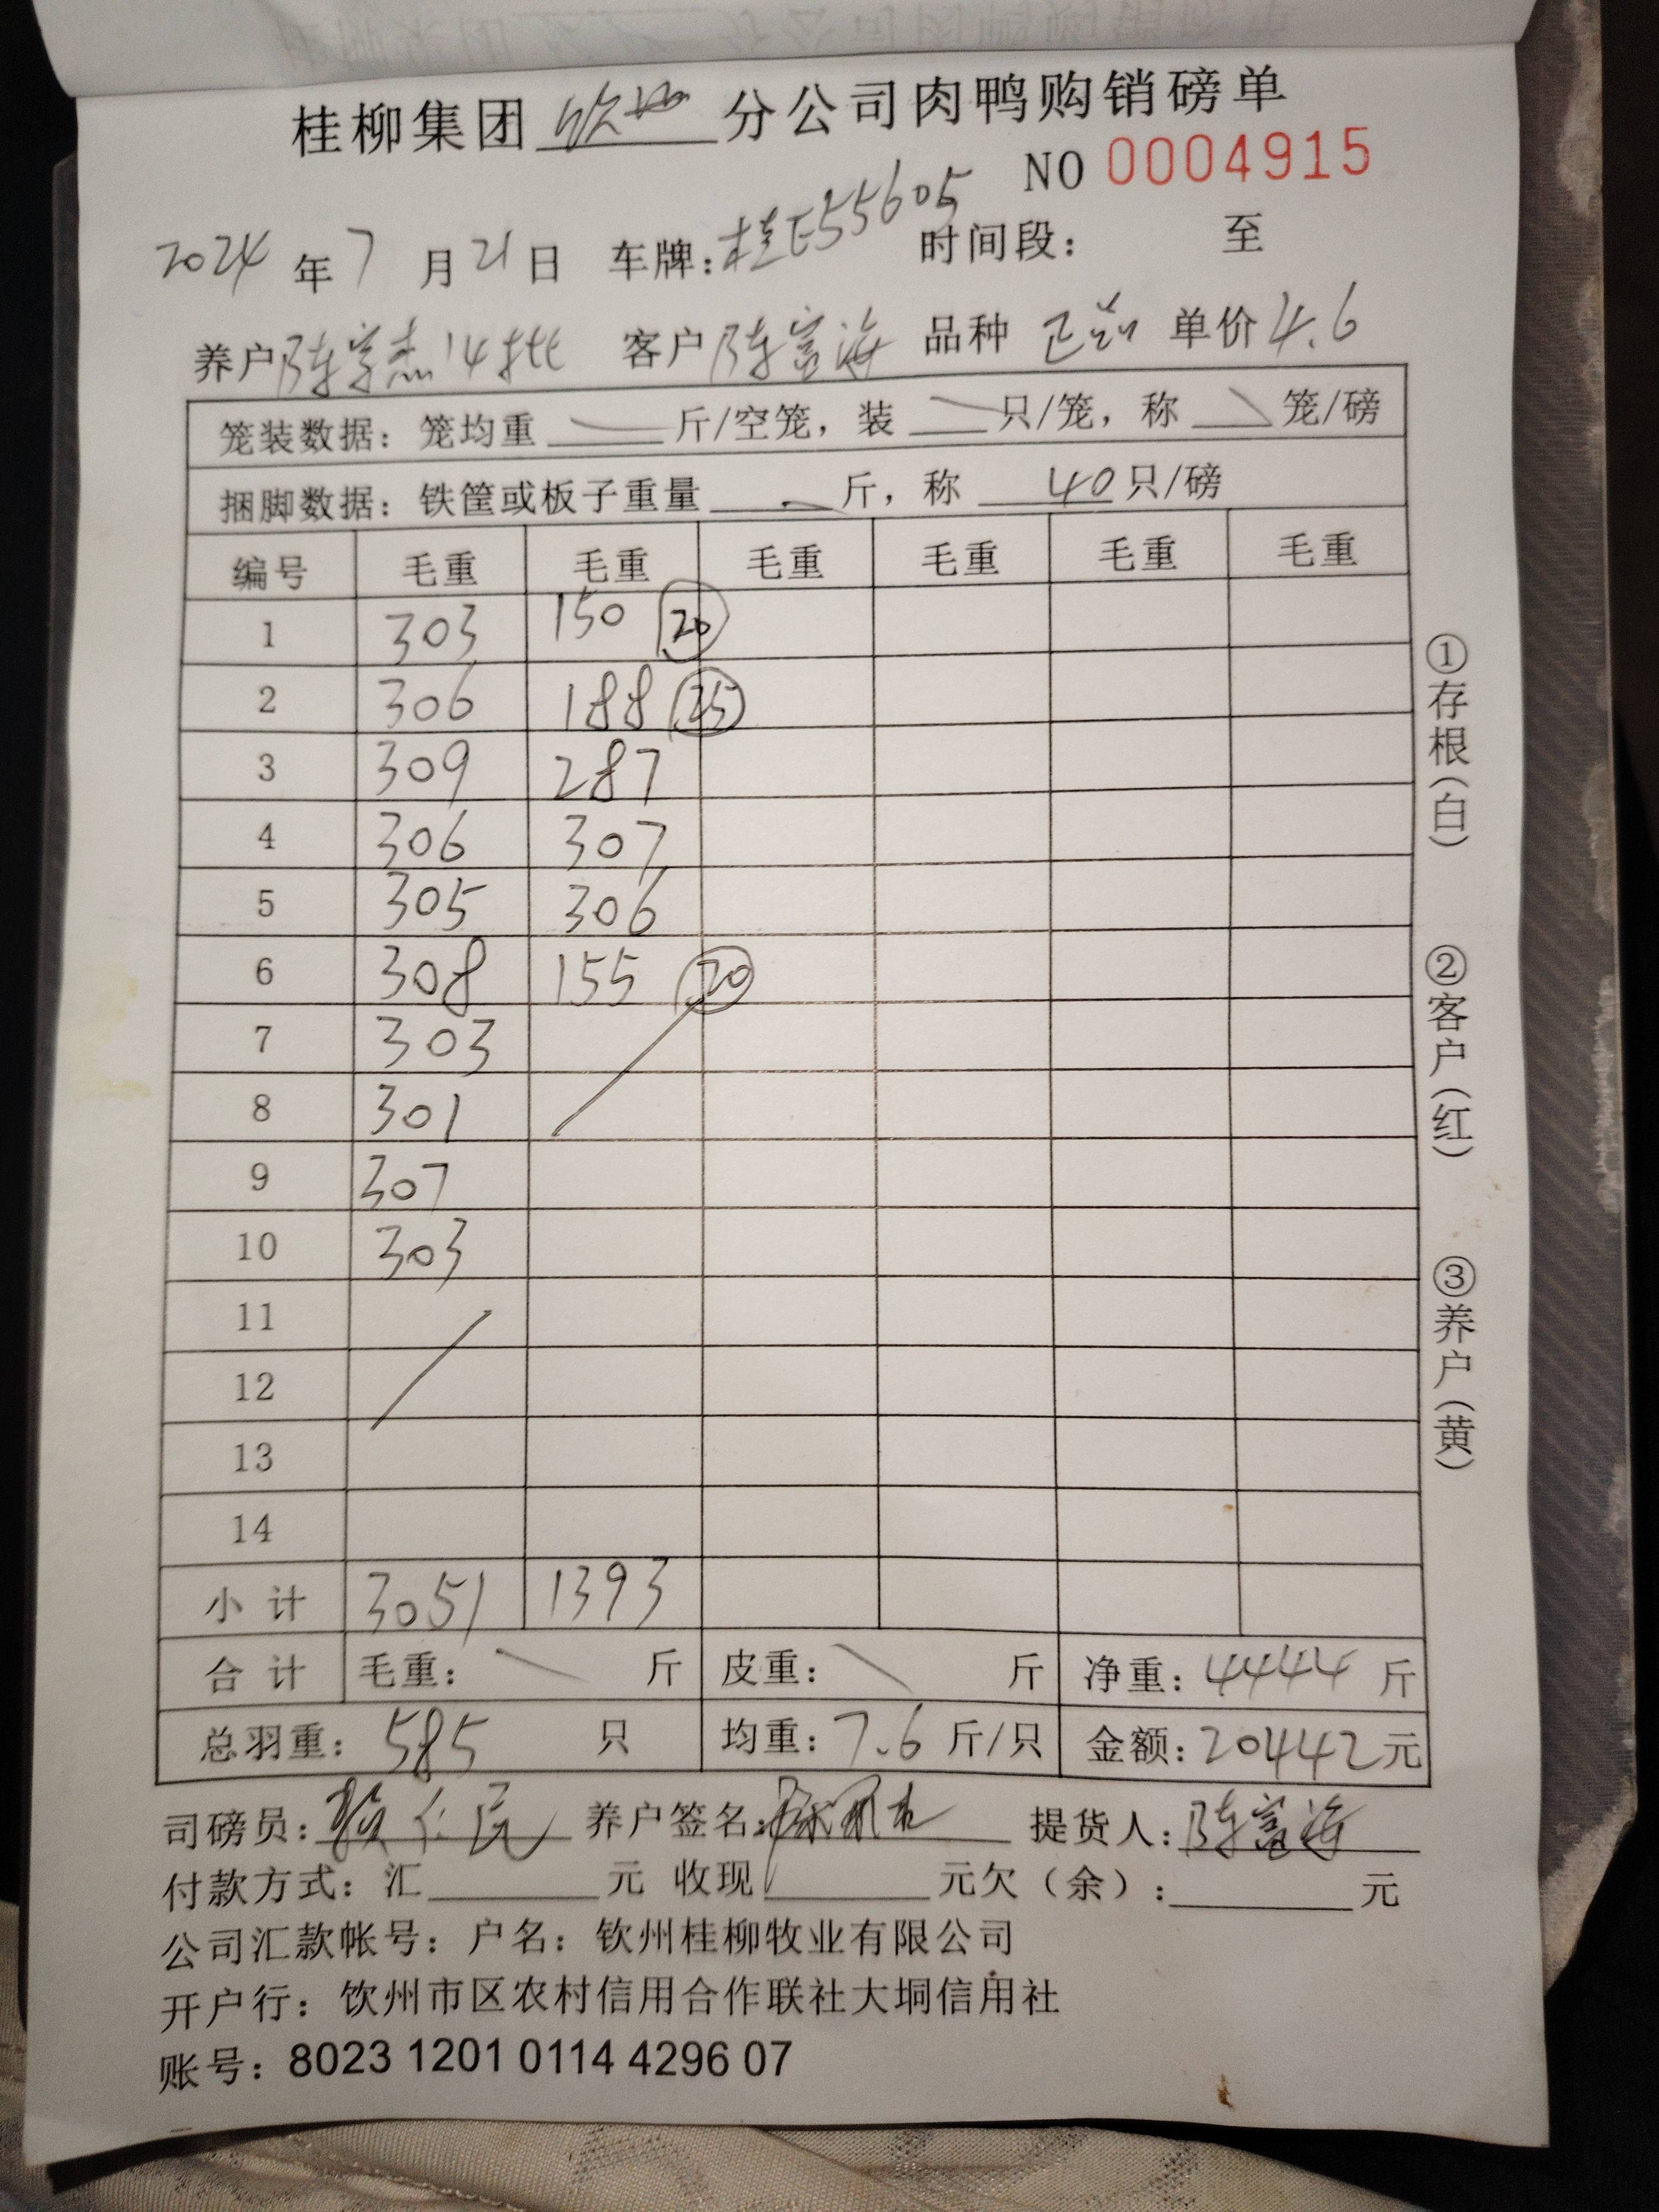 桂柳集团 钦州 分公司肉鸭购销磅单
NO 0004915
2024 年 7 月 21 日 车牌：桂E55605 时间段： 至
养户 陈学杰14批 客户 陈富海 品种 单价 4.6
笼装数据：笼均重 斤/空笼，装 只/笼，称 笼/磅
捆脚数据：铁筐或板子重量 斤，称 40 只/磅
编号 毛重 毛重 毛重 毛重 毛重 毛重
1 303 150 20
2 306 188 25
3 309 287
4 306 307
5 305 306
6 308 155 20
7 303
8 301
9 307
10 303
11
12
13
14
小计 3051 1393
合计 毛重： 斤 皮重： 斤 净重：4444 斤
总羽重：585 只 均重：7.6 斤/只 金额：20442元
司磅员： 养户签名： 提货人：陈富海
付款方式：汇 元 收现 元欠（余）： 元
公司汇款帐号：户名：钦州桂柳牧业有限公司
开户行：饮州市区农村信用合作联社大垌信用社
账号：8023 1201 0114 4296 07
①存根（白）
②客户（红）
③养户（黄）